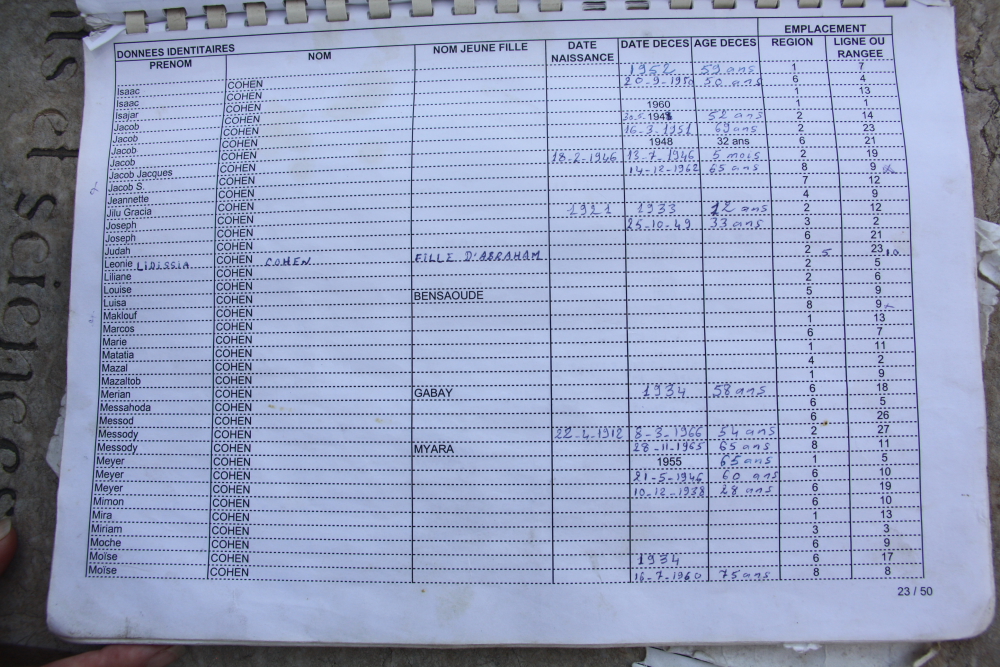 ls et sciences
DONNEES IDENTITAIRES EMPLACEMENT
PRENOM NOM NOM JEUNE FILLE DATE NAISSANCE DATE DECES AGE DECES REGION LIGNE OU RANGEE
Isaac COHEN 1952 59 ans 1 7
Isaac COHEN 20-9-1950 50 ans 6 4
Isajar COHEN 1 13
Jacob COHEN 1960 1 1
Jacob COHEN 1948 52 ans 2 14
Jacob COHEN 16-3-1951 69 ans 2 23
Jacob COHEN 1948 32 ans 6 21
Jacob Jacques COHEN 18-2-1946 13-7-1946 5 mois 2 19
Jacob S. COHEN 14-12-1962 65 ans 8 9
Jeannette COHEN 7 12
Jilu Gracia COHEN 4 9
Joseph COHEN 1921 1933 12 ans 2 12
Joseph COHEN 25-10-49 33 ans 3 2
Judah COHEN 6 21
Leonie LIDISSIA COHEN COHEN FILLE D'ABRAHAM 2 5 23 10
Liliane COHEN 2 5
Louise COHEN 2 6
Luisa COHEN BENSAOUDE 5 9
Maklouf COHEN 8 9
Marcos COHEN 1 13
Marie COHEN 6 7
Matatia COHEN 1 11
Mazal COHEN 4 2
Mazaltob COHEN 1 9
Merian COHEN GABAY 1934 58 ans 6 18
Messahoda COHEN 6 5
Messod COHEN 6 26
Messody COHEN 22-4-1912 8-3-1966 54 ans 2 27
Messody COHEN MYARA 28-11-1965 65 ans 8 11
Meyer COHEN 1955 65 ans 1 5
Meyer COHEN 21-5-1946 60 ans 6 10
Meyer COHEN 10-12-1938 28 ans 6 19
Mimon COHEN 6 10
Mira COHEN 1 13
Miriam COHEN 3 3
Moche COHEN 6 9
Moïse COHEN 1934 6 17
Moïse COHEN 16-7-1960 75 ans 8 8
23 / 50